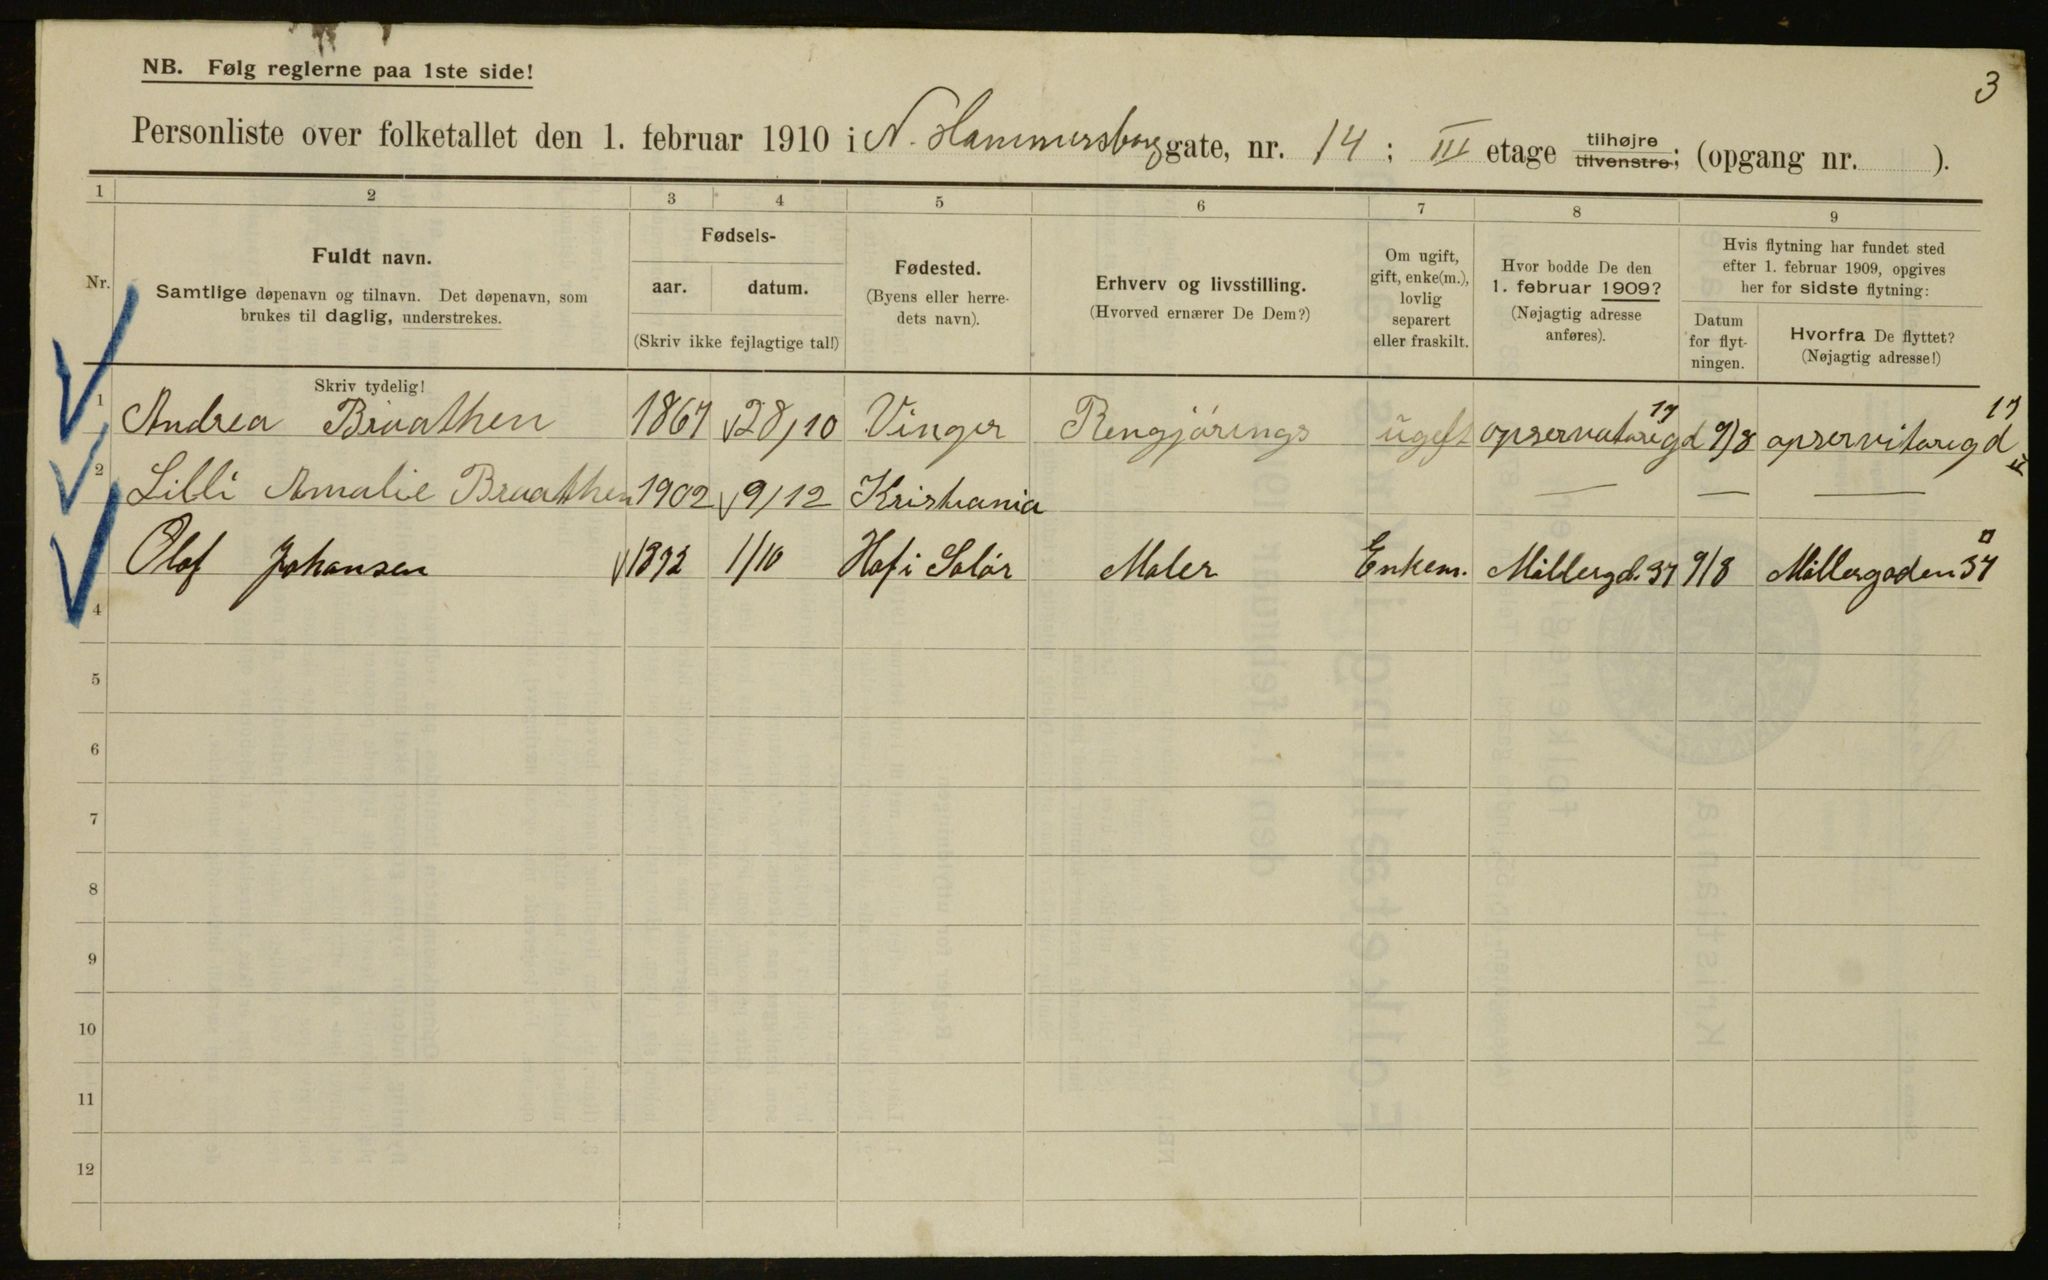 3
NB. Følg reglerne paa 1ste side!
Personliste over folketallet den 1. februar 1910 i N. Hammersborg gate, nr. 14 ; III etage tilhøjre tilvenstre; (opgang nr. ).
1 2 3 4 5 6 7 8 9
Nr.
Fuldt navn.
Samtlige døpenavn og tilnavn. Det døpenavn, som
brukes til daglig, understrekes.
Skriv tydelig!
Fødsels-
aar. datum.
(Skriv ikke fejlagtige tal!)
Fødested.
(Byens eller herre-
dets navn).
Erhverv og livsstilling.
(Hvorved ernærer De Dem?)
Om ugift,
gift, enke(m.),
lovlig
separert
eller fraskilt.
Hvor bodde De den
1. februar 1909?
(Nøjagtig adresse
anføres).
Hvis flytning har fundet sted
efter 1. februar 1909, opgives
her for sidste flytning:
Datum
for flyt-
ningen.
Hvorfra De flyttet?
(Nøjagtig adresse!)
1 Andrea Braathen 1867 28/10 Vinger Rengjörings ugeft opservatorigd 17 9/8 opservitorigd 17
2 Lilli Amalie Braathen 1902 9/12 Kristiania — — —
Olaf Johansen 1892 1/10 Hof i Solör Maler Enkem. Möllergd. 37 9/8 Möllergaden 37
4
5
6
7
8
9
10
11
12